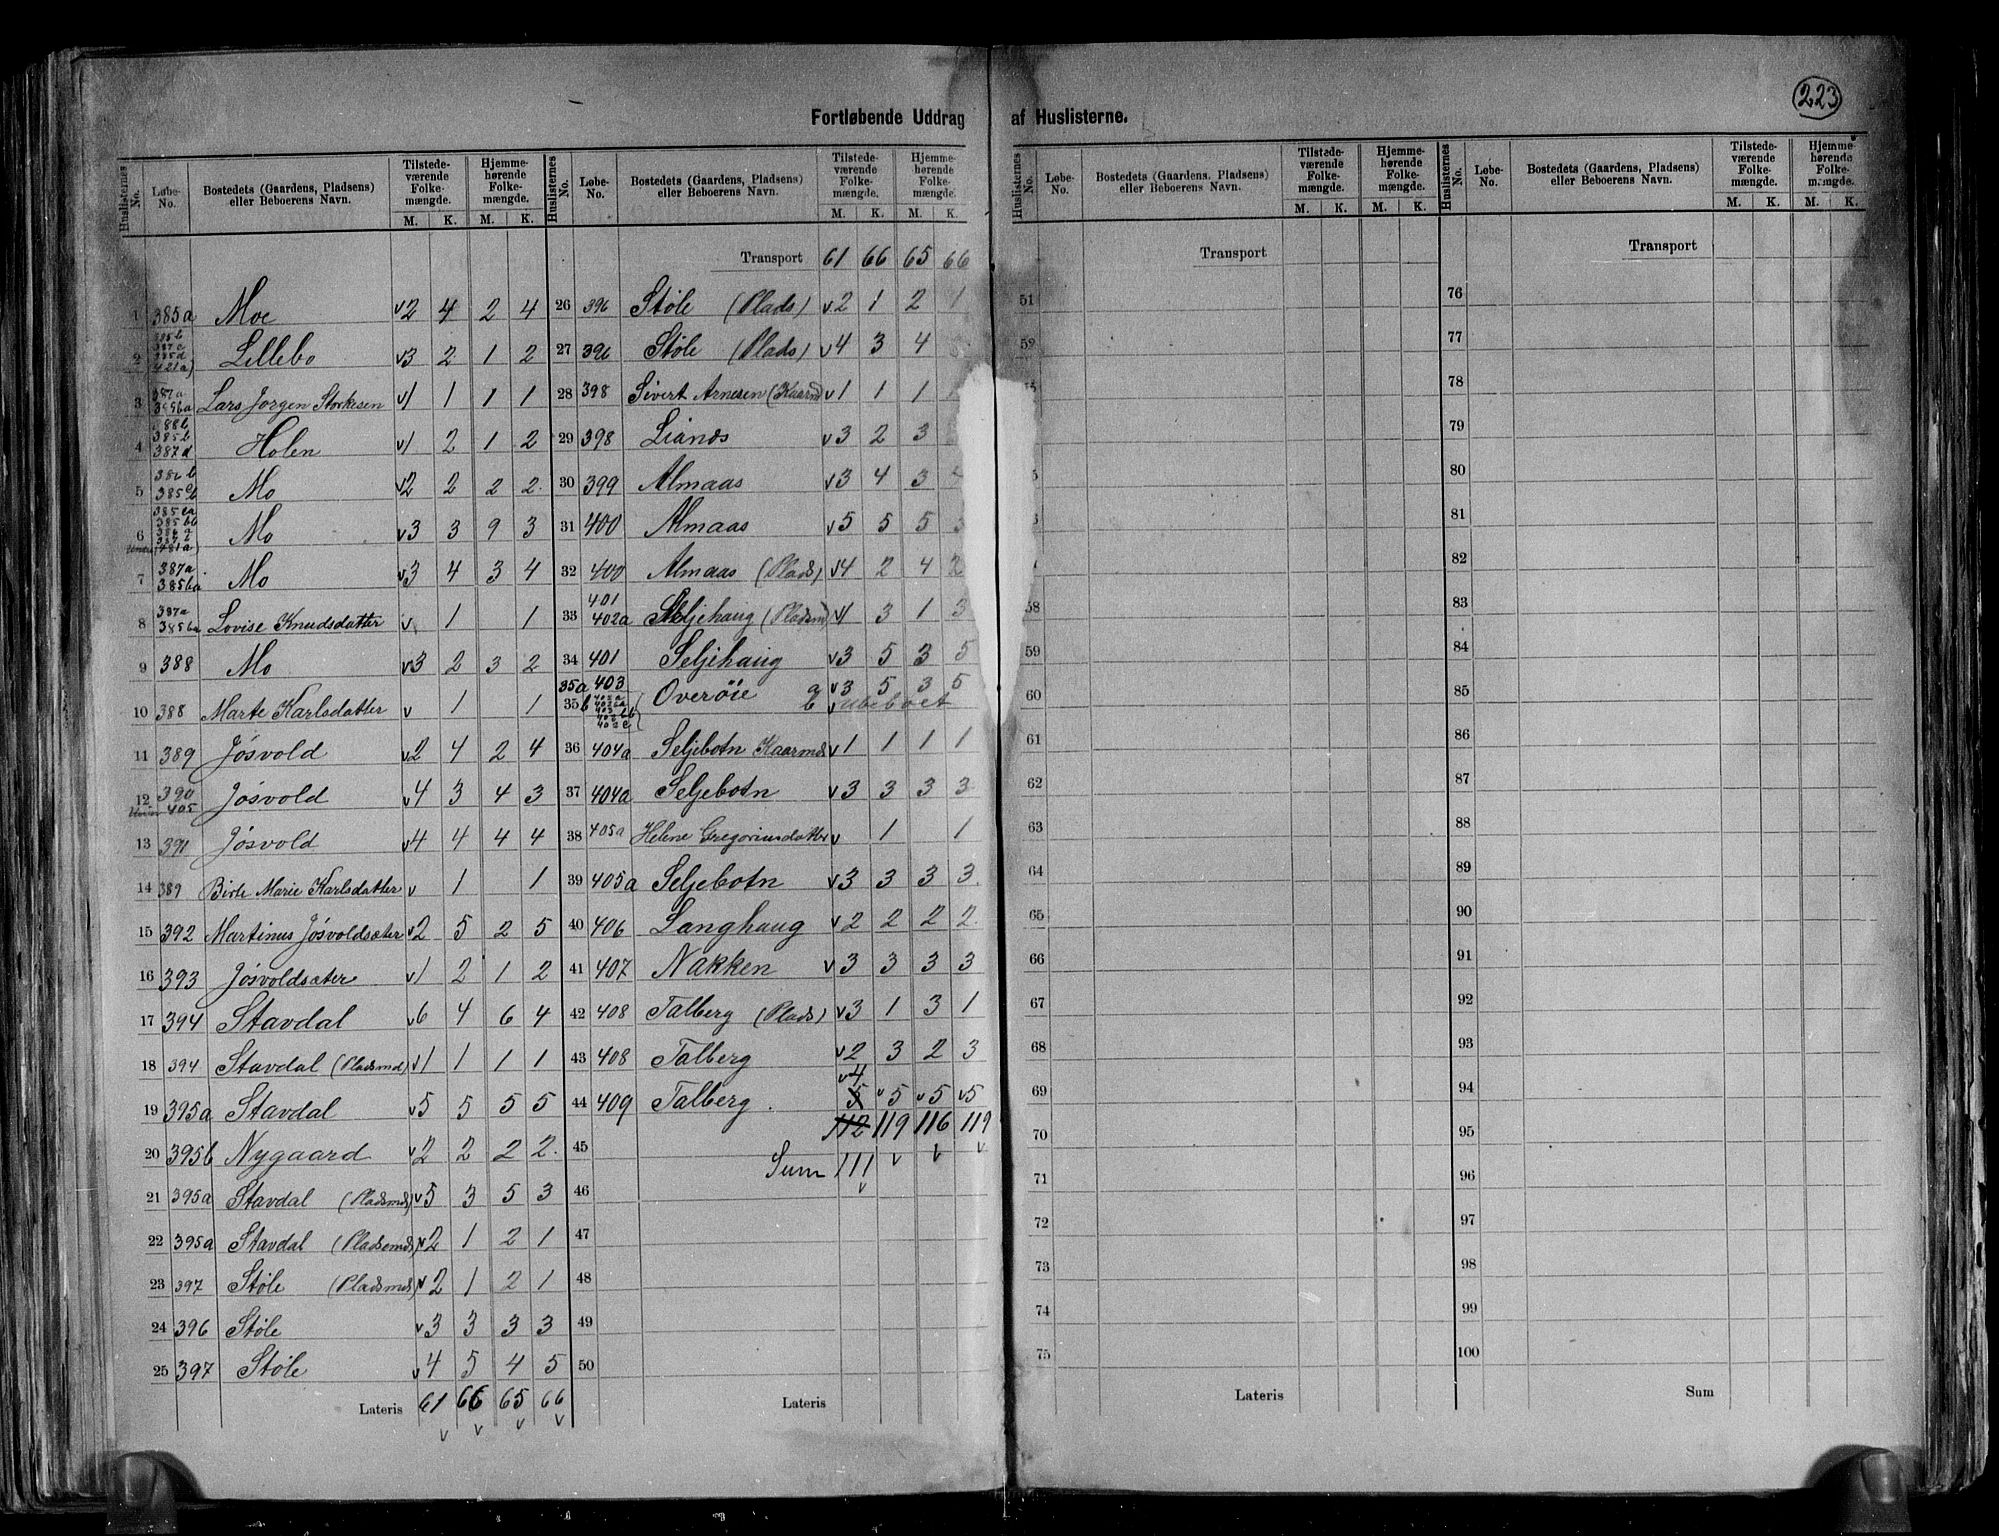 223
Fortløbende Uddrag af Huslisterne.
Huslisternes No. Løbe-No. Bostedets (Gaardens, Pladsens) eller Beboerens Navn. Tilstedeværende Folkemængde. M. K. Hjemmehørende Folkemængde. M. K.
1 385a Moe v2 4 2 4
2 Lillebo v3 2 1 2
3 Lars Jørgen Storkesen v1 1 1 1
4 385b 387d Holen v1 2 1 2
5 Mo v2 2 2 2.
6 Mo v3 3 9 3
7 387a 385ba Mo v3 4 3 4
8 387a 385ba Lovise Knudsdatter v 1 1
9 388 Mo v3 2 3 2
10 388 Marte Karlsdatter v 1 1
11 389 Jøsvold v2 4 2 4
12 390 405 Jøsvold v4 3 4 3
13 391 Jøsvold v4 4 4 4
14 389 Birte Marie Karlsdatter v 1 1
15 392 Martinus Jøsvoldsæter v2 5 2 5
16 393 Jøsvoldsæter v1 2 1 2
17 394 Stavdal v6 4 6 4
18 394 Stavdal (Pladsmd) v1 1 1 1
19 395a Stavdal v5 5 5 5
20 395b Nygaard v2 2 2 2.
21 395a Stavdal (Pladsmds) v5 3 5 3
22 395a Stavdal (Pladsemds) v2 1 2 1
23 397 Støle (Pladsmds) v2 1 2 1
24 396 Støle v3 3 3 3
25 397 Støle v4 5 4 5
Lateris 61 66 65 66
v v v v
Huslisternes No. Løbe-No. Bostedets (Gaardens, Pladsens) eller Beboerens Navn. Tilstedeværende Folkemængde. M. K. Hjemmehørende Folkemængde. M. K.
Transport 61 66 65 66
26 396 Støle (Plads) v2 1 2 1
27 396 Støle (Plads) v4 3 4
28 398 Sivert Arnesen (Kaarmd) v1 1 1
29 398 Lianes v3 2 3
30 399 Almaas v3 4 3
31 400 Almaas v5 5 5
32 400 Almaas (Plads) v4 2 4 2
33 401 402a Seljehaug (Pladsmd) v1 3 1 3
34 401 Seljehaug v3 5 3 5
35a 403 Overøie a v3 5 3 5
35b b v ubeboet
36 404a Seljebotn Kaarmds v1 1 1 1
37 404a Seljebotn v3 3 3 3
38 405a Helene Gregoriusdatter v 1 1
39 405a Seljebotn v3 3 3 3.
40 406 Langhaug v2 2 2 2.
41 407 Nakken v3 3 3 3
42 408 Talberg (Plads) v3 1 3 1
43 408 Talberg v2 3 2 3
v4
44 409 Talberg. 5 v5 v5 v5
112 119 116 119
45
Sum 111 v v v
v
46
47
48
49
50
Lateris
Huslisternes No. Løbe-No. Bostedets (Gaardens, Pladsens) eller Beboerens Navn. Tilstedeværende Folkemængde. M. K. Hjemmehørende Folkemængde. M. K.
Transport
51
52
58
59
60
61
62
63
64
65
66
67
68
69
70
71
72
73
74
75
Lateris
Huslisternes No. Løbe-No. Bostedets (Gaardens, Pladsens) eller Beboerens Navn. Tilstedeværende Folkemængde. M. K. Hjemmehørende Folkemængde. M. K.
Transport
76
77
78
79
80
81
82
83
84
85
86
87
88
89
90
91
92
93
94
95
96
97
98
99
100
Sum